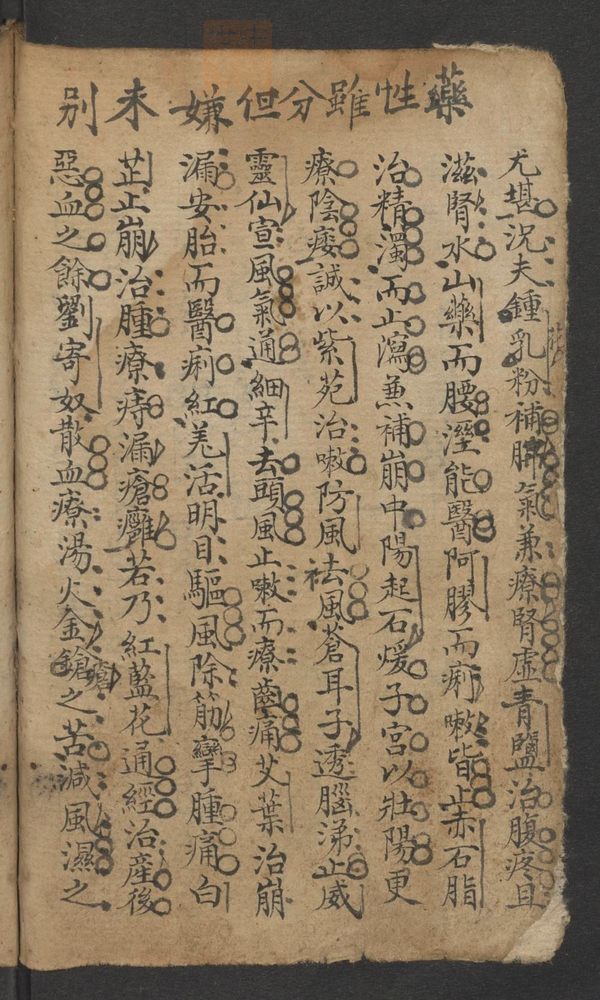 藥性雖分但嫌未別
尤堪況夫鍾乳粉補肺氣兼療腎虛青鹽治腹疼且
滋腎水山藥而腰溼能醫阿膠而痢嗽皆止赤石脂
治精濁而止瀉兼補崩中陽起石煖子宮以壯陽更
療陰痿誠以紫苑治嗽防風祛風蒼耳子透腦涕止威
靈仙宣風氣通細辛去頭風止嗽而療齒痛艾葉治崩
漏安胎而醫痢紅羌活明目驅風除筋攣腫痛白
芷止崩治腫療痔漏瘡癰若乃紅藍花通經治產後
惡血之餘劉寄奴散血療湯火金鎗之苦減風濕之